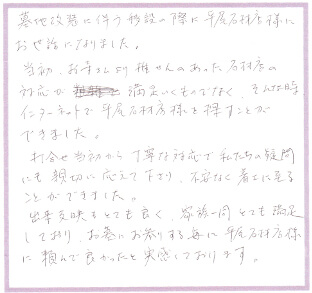 墓地改葬に伴う移設の際に平尾石材店様に
お世話になりました。
当初、お寺さんより推せんのあった石材店の
対応が満足いくものでなく、そんな時
インターネットで平尾石材店様を探すことが
できました。
打合せ当初から丁寧な対応で私たちの疑問
にも親切に応えて下さり、不安なく着工に至る
ことができました。
出来映もとても良く、家族一同とても満足
しており、お墓にお参りする毎に平尾石材店様
に頼んで良かったと実感しております。